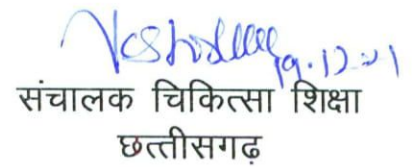 19.12.21
संचालक चिकित्सा शिक्षा
छत्तीसगढ़